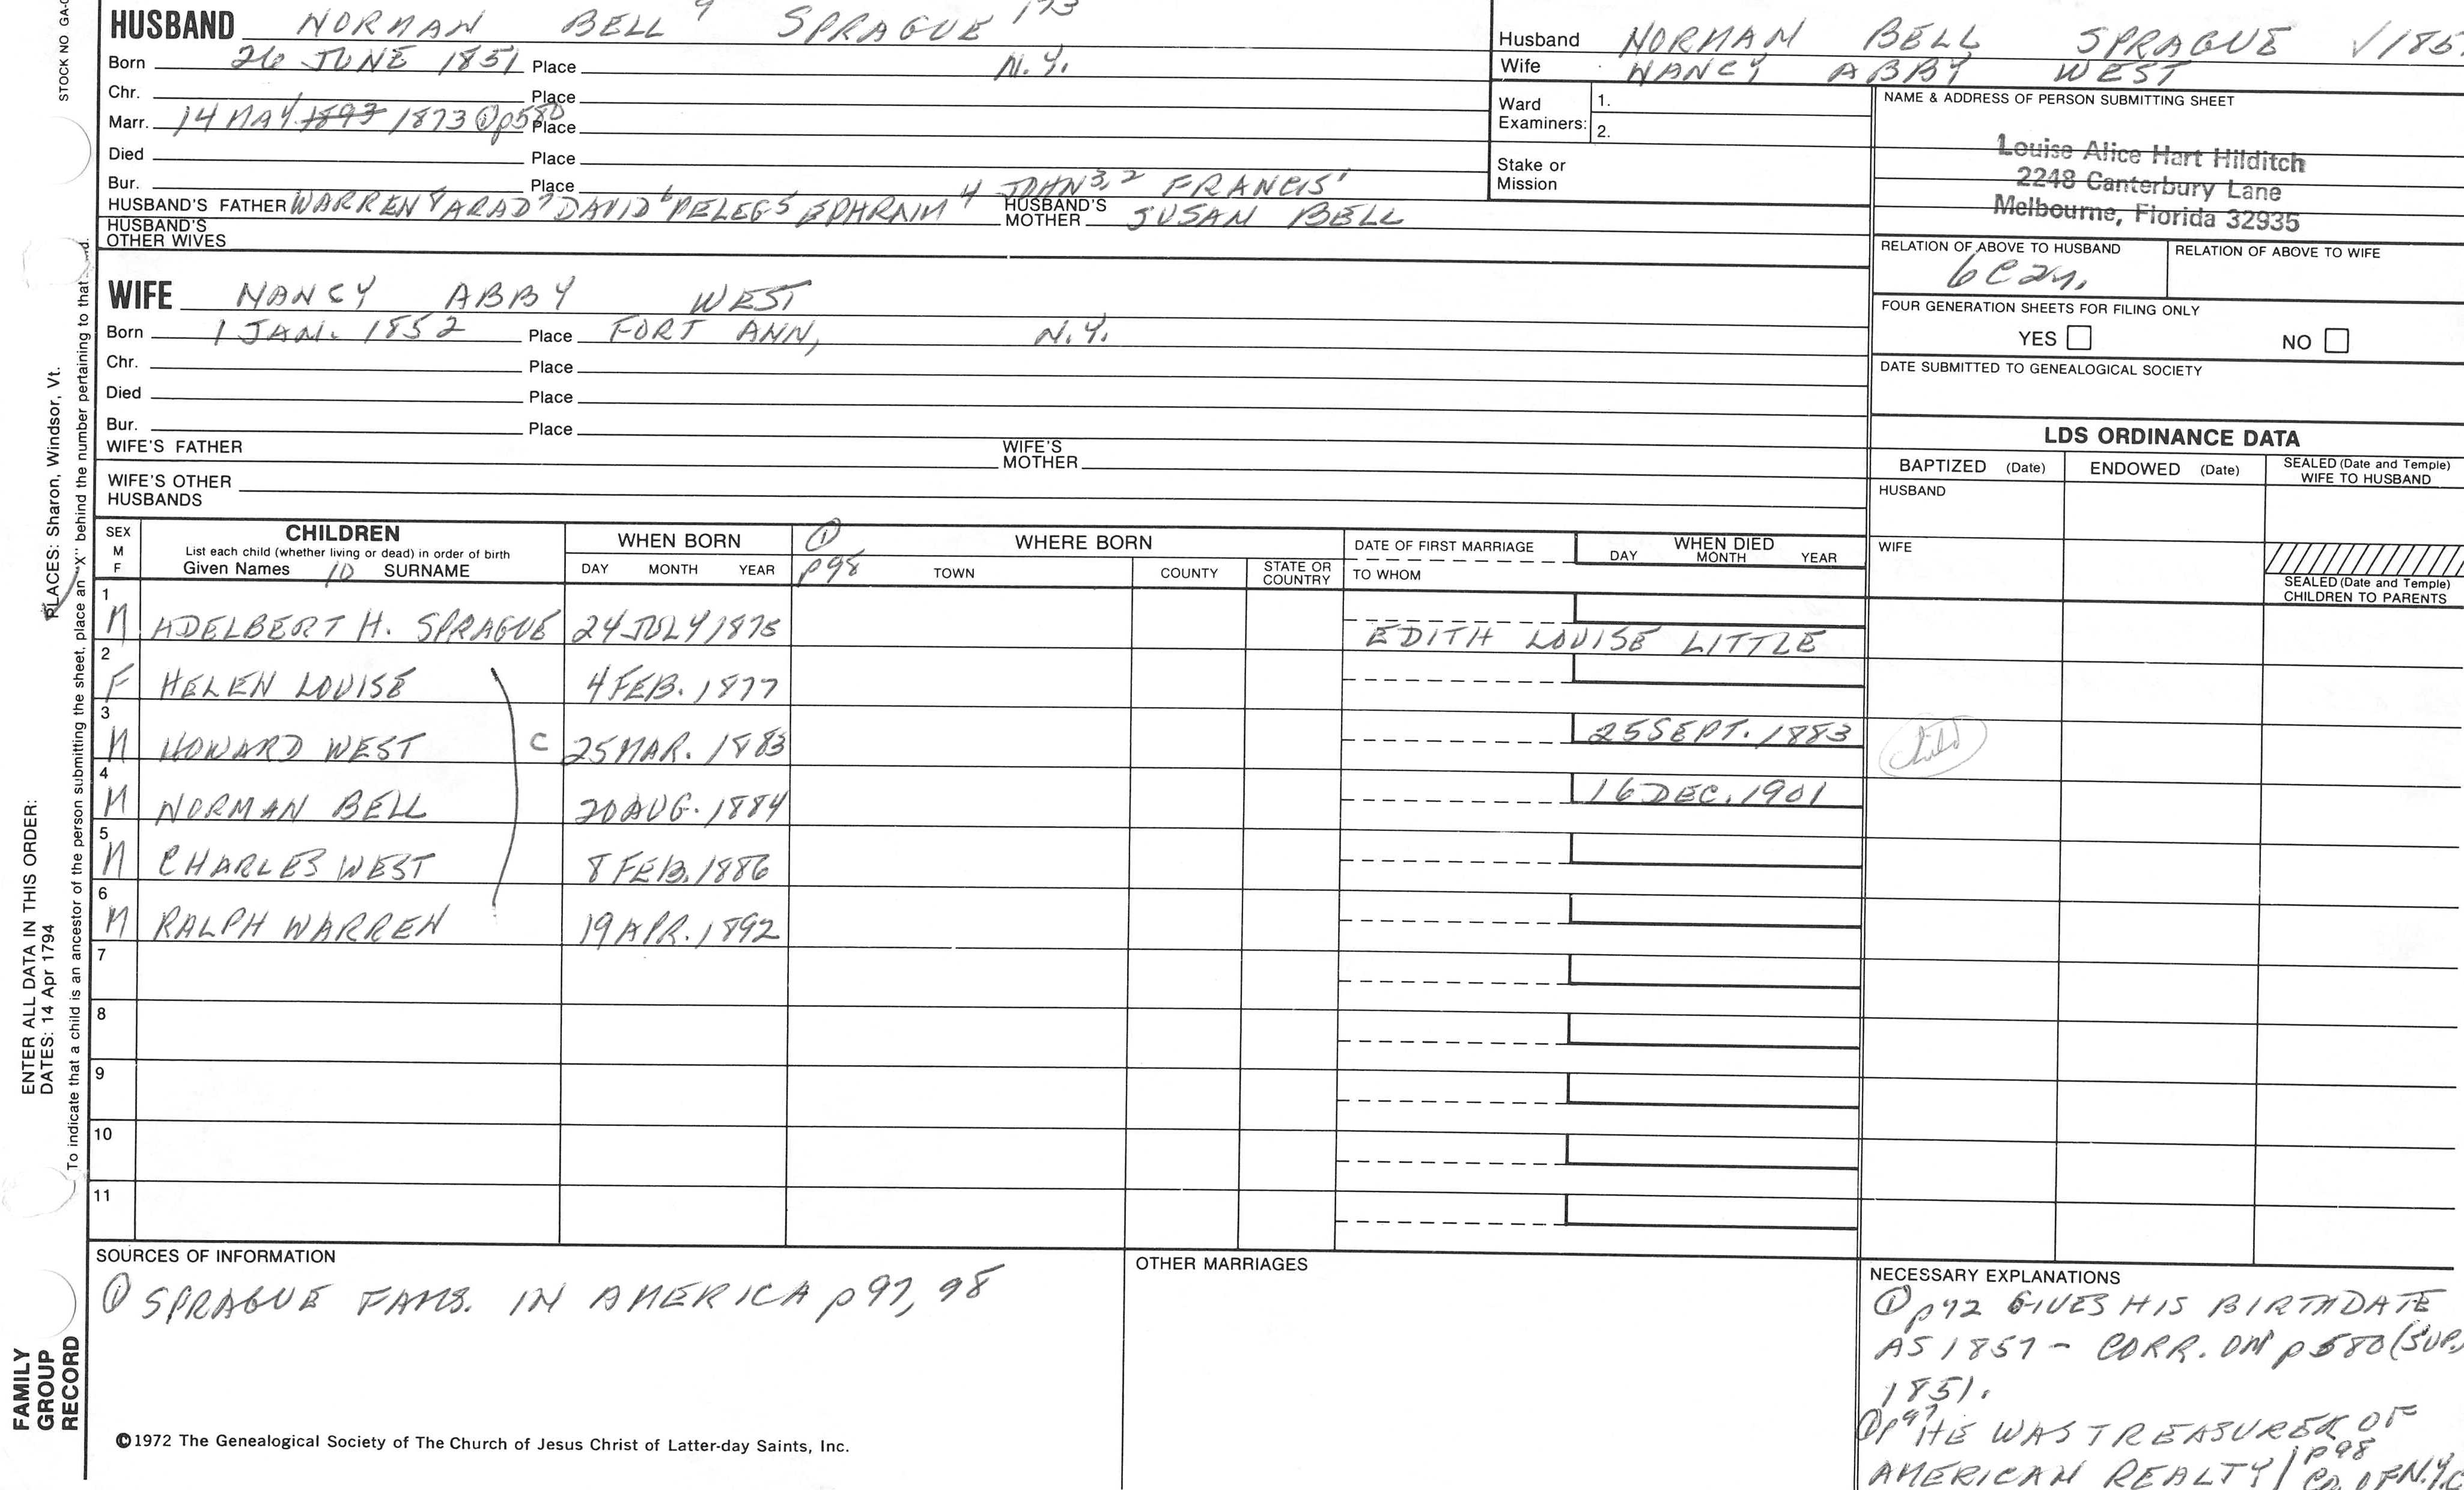 HUSBAND NORMAN BELL 9 SPRAGUE 193
Born 26 JUNE 1851 Place N.Y.
Chr. Place
Marr. 14 MAY 1893 1873 ① p580 Place
Died Place
Bur. Place
HUSBAND'S FATHER WARREN 8 ARAD 7 DAVID 6 PELEG 5 EPHRAIM 4 JOHN 3, 2 FRANCIS 1 HUSBAND'S MOTHER SUSAN BELL
HUSBAND'S OTHER WIVES
WIFE NANCY ABBY WEST
Born 1 JAN. 1852 Place FORT ANN, N.Y.
Chr. Place
Died Place
Bur. Place
WIFE'S FATHER WIFE'S MOTHER
WIFE'S OTHER HUSBANDS
Husband NORMAN BELL SPRAGUE √ 185
Wife NANCY ABBY WEST
Ward Examiners: 1.
2.
Stake or Mission
NAME & ADDRESS OF PERSON SUBMITTING SHEET
Louise Alice Hart Hilditch
2248 Canterbury Lane
Melbourne, Florida 32935
RELATION OF ABOVE TO HUSBAND RELATION OF ABOVE TO WIFE
6C2r.
FOUR GENERATION SHEETS FOR FILING ONLY
YES NO
DATE SUBMITTED TO GENEALOGICAL SOCIETY
LDS ORDINANCE DATA
BAPTIZED (Date) ENDOWED (Date) SEALED (Date and Temple) WIFE TO HUSBAND
HUSBAND
WIFE
SEALED (Date and Temple) CHILDREN TO PARENTS
SEX M F
CHILDREN
List each child (whether living or dead) in order of birth
Given Names 10 SURNAME
WHEN BORN
DAY MONTH YEAR
① p98
WHERE BORN
TOWN COUNTY STATE OR COUNTRY
DATE OF FIRST MARRIAGE
TO WHOM
WHEN DIED
DAY MONTH YEAR
1 M ADELBERT H. SPRAGUE 24 JULY 1875 EDITH LOUISE LITTLE
2 F HELEN LOUISE 4 FEB. 1877
3 M HOWARD WEST C 25 MAR. 1883 25 SEPT. 1883 child
4 M NORMAN BELL 20 AUG. 1884 16 DEC. 1901
5 M CHARLES WEST 8 FEB. 1886
6 M RALPH WARREN 19 APR. 1892
7
8
9
10
11
SOURCES OF INFORMATION
① SPRAGUE FAMS. IN AMERICA p 97, 98
OTHER MARRIAGES
NECESSARY EXPLANATIONS
① p92 GIVES HIS BIRTHDATE
AS 1857 - CORR. ON p 580 (SUP.)
1851.
① p97 HE WAS TREASURER OF
AMERICAN REALTY / p98 CO. OF N.Y.C
©1972 The Genealogical Society of The Church of Jesus Christ of Latter-day Saints, Inc.
STOCK NO GA-0
PLACES: Sharon, Windsor, Vt.
To indicate that a child is an ancestor of the person submitting the sheet, place an "X" behind the number pertaining to that
ENTER ALL DATA IN THIS ORDER:
DATES: 14 Apr 1794
FAMILY
GROUP
RECORD